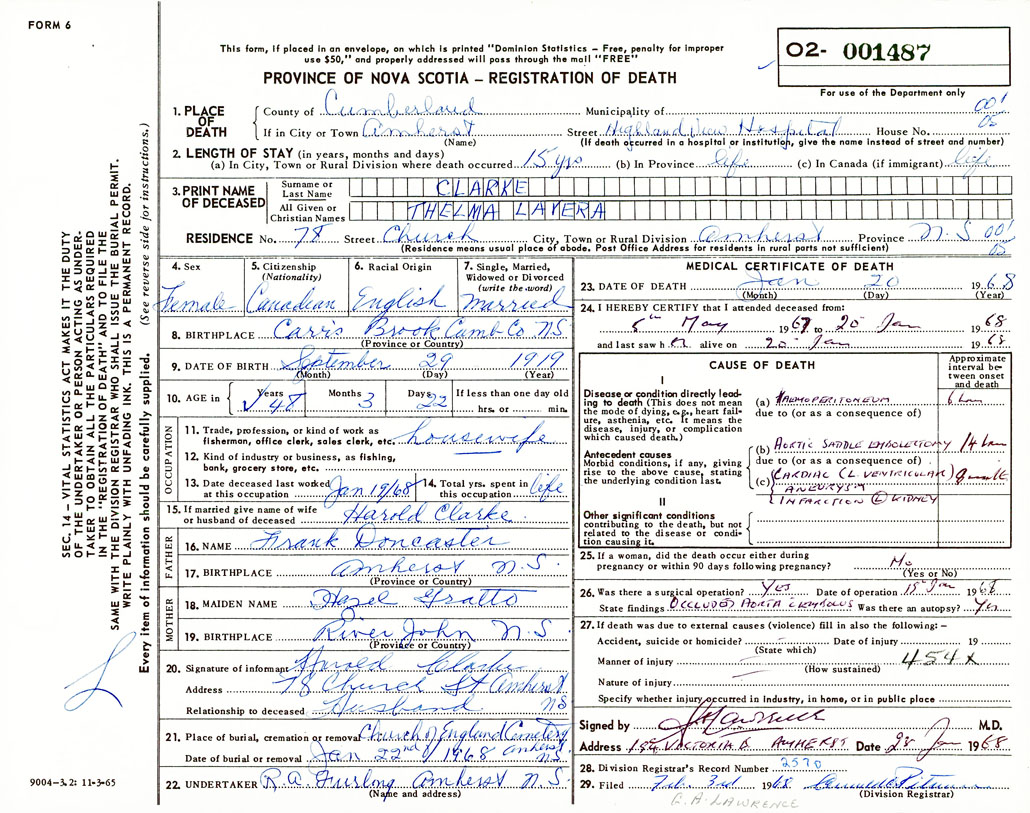 FORM 6
This form, if placed in an envelope, on which is printed "Dominion Statistics – Free, penalty for improper
use $50," and properly addressed will pass through the mail "FREE"
PROVINCE OF NOVA SCOTIA – REGISTRATION OF DEATH
O2- 001487
For use of the Department only
SEC. 14 – VITAL STATISTICS ACT MAKES IT THE DUTY
OF THE UNDERTAKER OR PERSON ACTING AS UNDER-
TAKER TO OBTAIN ALL THE PARTICULARS REQUIRED
IN THE "REGISTRATION OF DEATH" AND TO FILE THE
SAME WITH THE DIVISION REGISTRAR WHO SHALL ISSUE THE BURIAL PERMIT.
WRITE PLAINLY WITH UNFADING INK. THIS IS A PERMANENT RECORD.
Every item of information should be carefully supplied. (See reverse side for instructions.)
1. PLACE OF DEATH County of Cumberland Municipality of 001
If in City or Town Amherst Street Highland View Hospital House No. 05
(Name) (If death occurred in a hospital or institution, give the name instead of street and number)
2. LENGTH OF STAY (in years, months and days)
(a) In City, Town or Rural Division where death occurred 15 yrs (b) In Province life (c) In Canada (if immigrant) life
3. PRINT NAME OF DECEASED Surname or Last Name CLARKE
All Given or Christian Names THELMA LAVERA
RESIDENCE No. 78 Street Church City, Town or Rural Division Amherst Province N.S 001
(Residence means usual place of abode. Post Office Address for residents in rural parts not sufficient) 05
4. Sex Female
5. Citizenship (Nationality) Canadian
6. Racial Origin English
7. Single, Married, Widowed or Divorced (write the word) Married
8. BIRTHPLACE Carris Brook Cumb Co. N.S
(Province or Country)
9. DATE OF BIRTH September 29 1919
(Month) (Day) (Year)
10. AGE in Years 48 Months 3 Days 22 If less than one day old
hrs. or min.
OCCUPATION
11. Trade, profession, or kind of work as
fisherman, office clerk, sales clerk, etc. housewife
12. Kind of industry or business, as fishing,
bank, grocery store, etc.
13. Date deceased last worked at this occupation Jan 19/68 14. Total yrs. spent in this occupation life
15. If married give name of wife
or husband of deceased Harold Clarke
FATHER
16. NAME Frank Doncaster
17. BIRTHPLACE Amherst N.S.
(Province or Country)
MOTHER
18. MAIDEN NAME Hazel Gratto
19. BIRTHPLACE River John N.S
(Province or Country)
20. Signature of informant Harold Clarke
Address 78 Church St Amherst
Relationship to deceased Husband NS
21. Place of burial, cremation or removal Church of England Cemetery
Date of burial or removal Jan 22nd 1968 Amherst N.S.
22. UNDERTAKER R.A. Furlong Amherst N.S.
(Name and address)
9004-3.2: 11-3-65
MEDICAL CERTIFICATE OF DEATH
23. DATE OF DEATH Jan 20 1968
(Month) (Day) (Year)
24. I HEREBY CERTIFY that I attended deceased from:
6th May 1967 to 20 Jan 1968
and last saw her alive on 20 Jan 1968
CAUSE OF DEATH
Approximate interval between onset and death
I
Disease or condition directly leading to death (This does not mean the mode of dying, e.g., heart failure, asthenia, etc. It means the disease, injury, or complication which caused death.)
(a) HAEMOPERITONEUM
due to (or as a consequence of)
Antecedent causes
Morbid conditions, if any, giving rise to the above cause, stating the underlying condition last.
(b) AORTIC SADDLE EMBOLECTOMY
due to (or as a consequence of)
(c) CARDIAC (L VENTRICULAR)
ANEURYSM
INFARCTION KIDNEY
II
Other significant conditions
contributing to the death, but not
related to the disease or condi-
tion causing it.
25. If a woman, did the death occur either during
pregnancy or within 90 days following pregnancy? No
(Yes or No)
26. Was there a surgical operation? Yes Date of operation 19 Jan 1968
State findings OCCLUDED AORTA EMBOLUS Was there an autopsy? Yes
27. If death was due to external causes (violence) fill in also the following: –
Accident, suicide or homicide? Date of injury 19
(State which)
Manner of injury 454X
(How sustained)
Nature of injury
Specify whether injury occurred in industry, in home, or in public place
Signed by M.D.
Address VICTORIA AMHERST Date 28 Jan 1968
28. Division Registrar's Record Number 2570
29. Filed Feb. 3rd 1968
(Division Registrar)
G.A. LAWRENCE